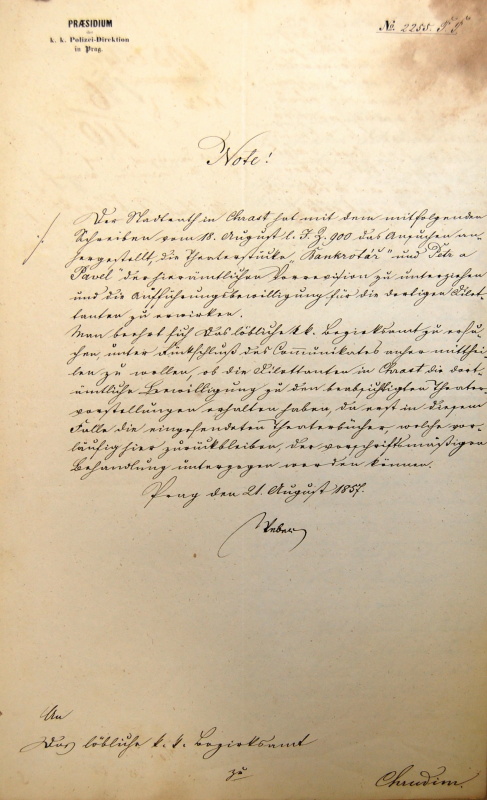 PRÆSIDIUM
der
k. k. Polizei-Direktion
in Prag.
No. 2255. P. P.
Note!
Der Stadtrath in Chrast hat mit dem mitfolgenden
Schreiben vom 18. August l. J. Z. 900 das Ansuchen an-
hergestellt, die Theaterstücke „Bankrotář" und Petr a
Pavel" der hierämtlichen Vorrevision zu unterziehen
und die Aufführungsbewilligung für die dortigen Dilet-
tanten zu erwirken.
Man beehrt sich Das löbliche k. k. Bezirksamt zu ersu-
chen, unter Rückschluß des Communikates anher mitthei-
len zu wollen, ob die Dilettanten in Chrast die dort-
ämtliche Bewilligung zu den beabsichtigten Theater-
vorstellungen erhalten haben, da erst in diesem
Falle die eingesendeten Theaterbücher, welche vor-
läufig hier zurückbleiben, der vorschriftsmäßigen
Behandlung unterzogen werden können.
Prag den 21. August 1857.
Weber
An
Das löbliche k. k. Bezirksamt
zu
Chrudim.